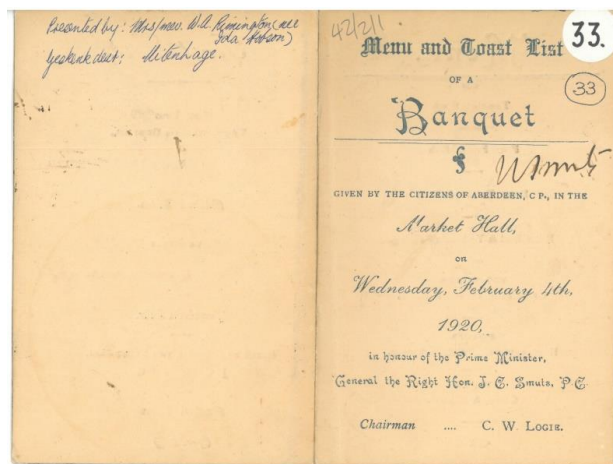 Presented by: Mrs/mev. W.A. Rimington (nee
Ida Hobson)
Geskenk deur: Uitenhage.
42/2/1
33.
Menu and Toast List
33
OF A
Banquet
GIVEN BY THE CITIZENS OF ABERDEEN, C P., IN THE
Market Hall,
on
Wednesday, February 4th,
1920,
in honour of the Prime Minister,
General the Right Hon. J. C. Smuts, P.C.
Chairman .... C. W LOGIE.